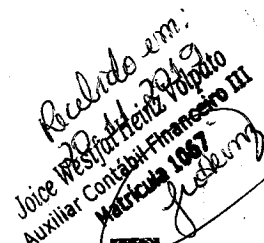 Recebido em:
2019
Joice Westfal Heinz Volpato
Auxiliar Contábil-Financeiro III
Matrícula 1067